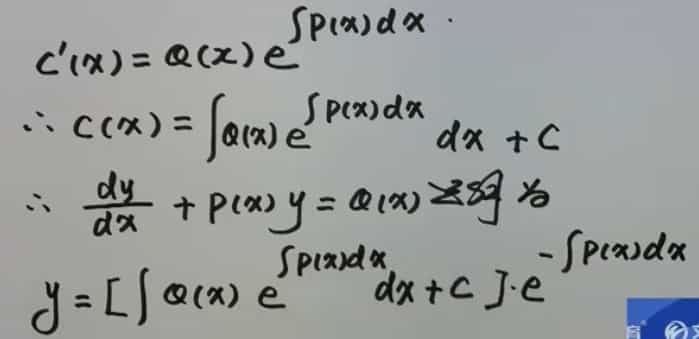 C'(x) = Q(x) e^{∫P(x)dx}.
∴ C(x) = ∫Q(x) e^{∫P(x)dx} dx + C
∴ dy/dx + P(x) y = Q(x) 之通解为
y = [∫ Q(x) e^{∫P(x)dx} dx + C]·e^{-∫P(x)dx}
育